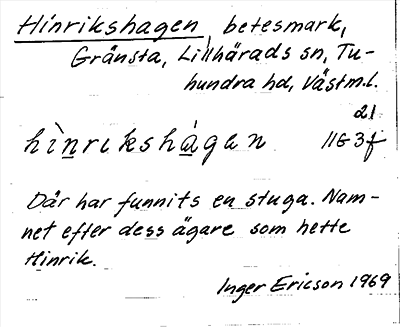 Hinrikshagen, betesmark,
Gränsta, Lillhärads sn, Tu-
hundra hd, Västm.l.
21
hìn̲rikshá̲gan 11G3f
Där har funnits en stuga. Nam-
net efter dess ägare som hette
Hinrik.
Inger Ericson 1969